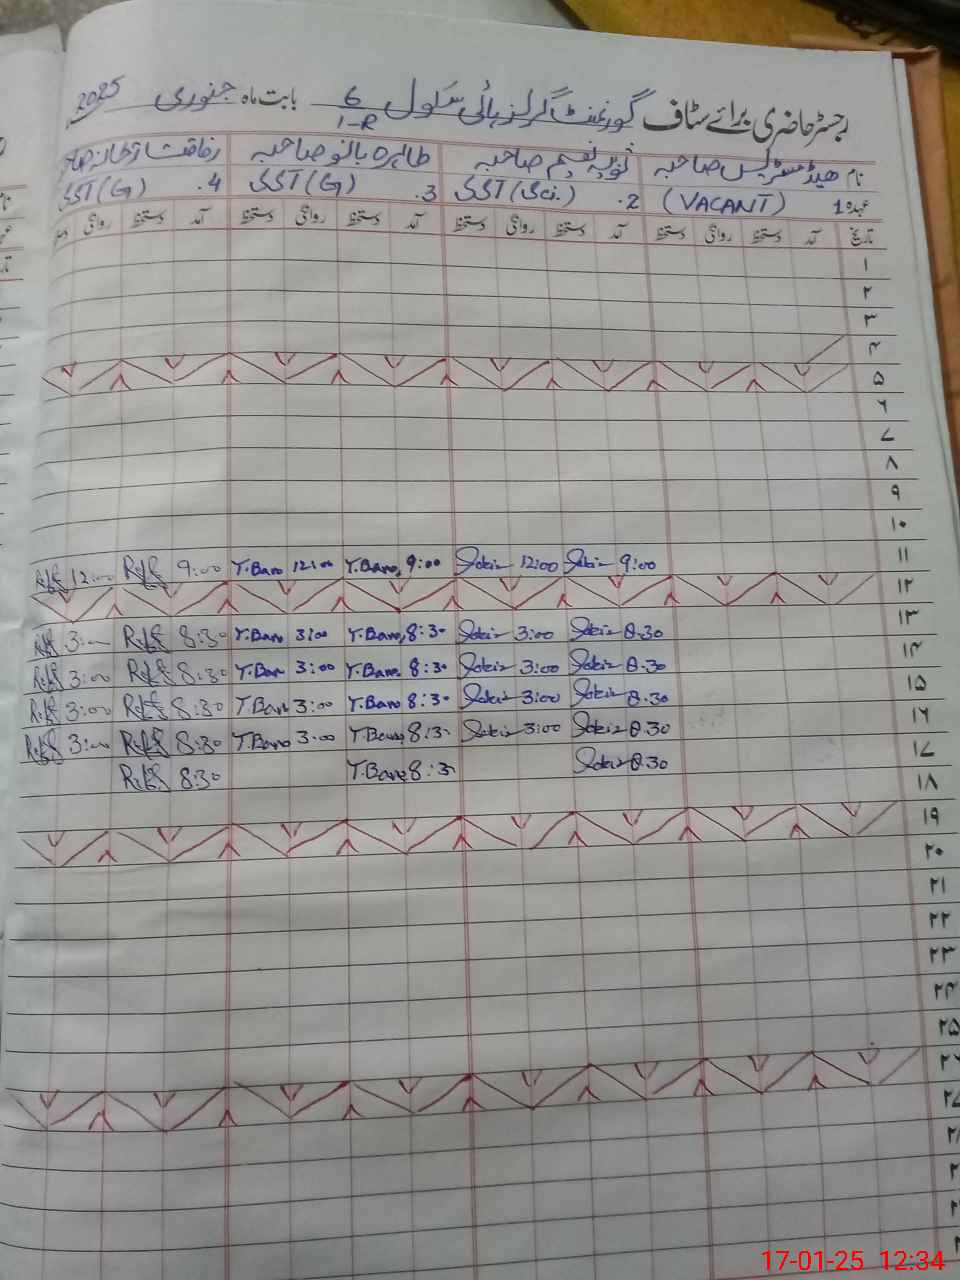 رجسٹر حاضری برائے سٹاف گورنمنٹ گرلز ہائی سکول 6/1-R بابت ماہ جنوری 2025
نام ہیڈ مسٹریس صاحبہ ثوبیہ نسیم صاحبہ طاہرہ بانو صاحبہ
عہدہ 1 (VACANT) 2. SST (Sci.) 3. SST (G) 4. SST (G)
تاریخ آمد دستخط روانگی دستخط آمد دستخط روانگی دستخط آمد دستخط روانگی دستخط آمد دستخط روانگی
۱
۲
۳
۴
۵
۶
۷
۸
۹
۱۰
۱۱ 9:00 12:00 9:00 T.Bano 12:00 T.Bano 9:00 12:00
۱۲
۱۳ 8:30 3:00 8:30 T.Bano 3:00 T.Bano 8:30 3:00
۱۴ 8:30 3:00 8:30 T.Bano 3:00 T.Bano 8:30 3:00
۱۵ 8:30 3:00 8:30 T.Bano 3:00 T.Bano 8:30 3:00
۱۶ 8:30 3:00 8:30 T.Bano 3:00 T.Bano 8:30 3:00
۱۷ 8:30 8:30 T.Bano 8:30
۱۸
۱۹
۲۰
۲۱
۲۲
۲۳
۲۴
۲۵
۲۶
۲۷
۲۸
17-01-25 12:34